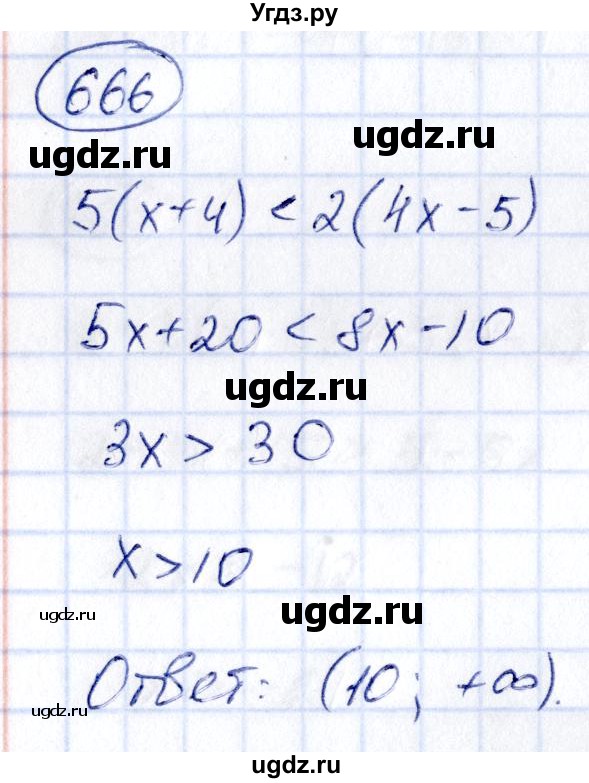 Угдз.ру
666
ugdz.ru
ugdz.ru
5(x+4) < 2(4x-5)
5x+20 < 8x-10
ugdz.ru
3x > 30
x > 10
ugdz.ru
ugdz.ru
ugdz.ru
Ответ: (10; +∞).
ugdz.ru
ugdz.ru
ugdz.ru